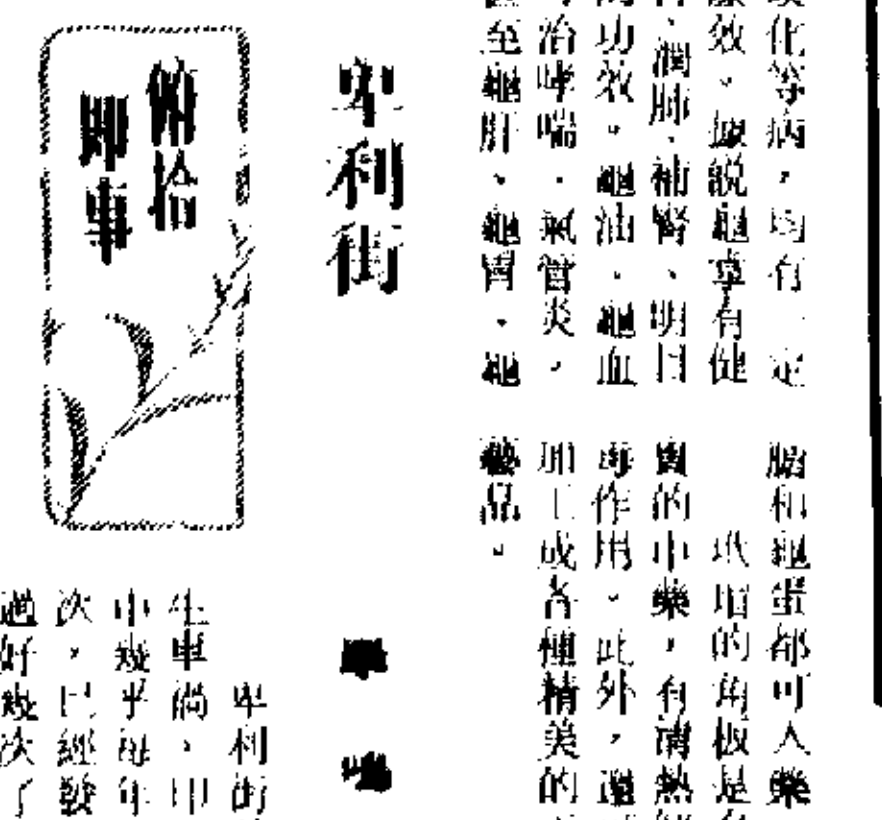 化等病，均有一定
效。據說龜掌有健
、潤肺、補腎、明目
功效。龜油、龜血
治哮喘、氣管炎，
至龜肝、龜胃、龜
腦和龜蛋都可入藥
玳瑁的角板是
貴的中藥，有清熱
毒作用。此外，還
加工成各種精美的
藝品。
卑利街
俯拾
即事
卑利街
生車禍，印
中幾乎每年
次，已經發
過好幾次了